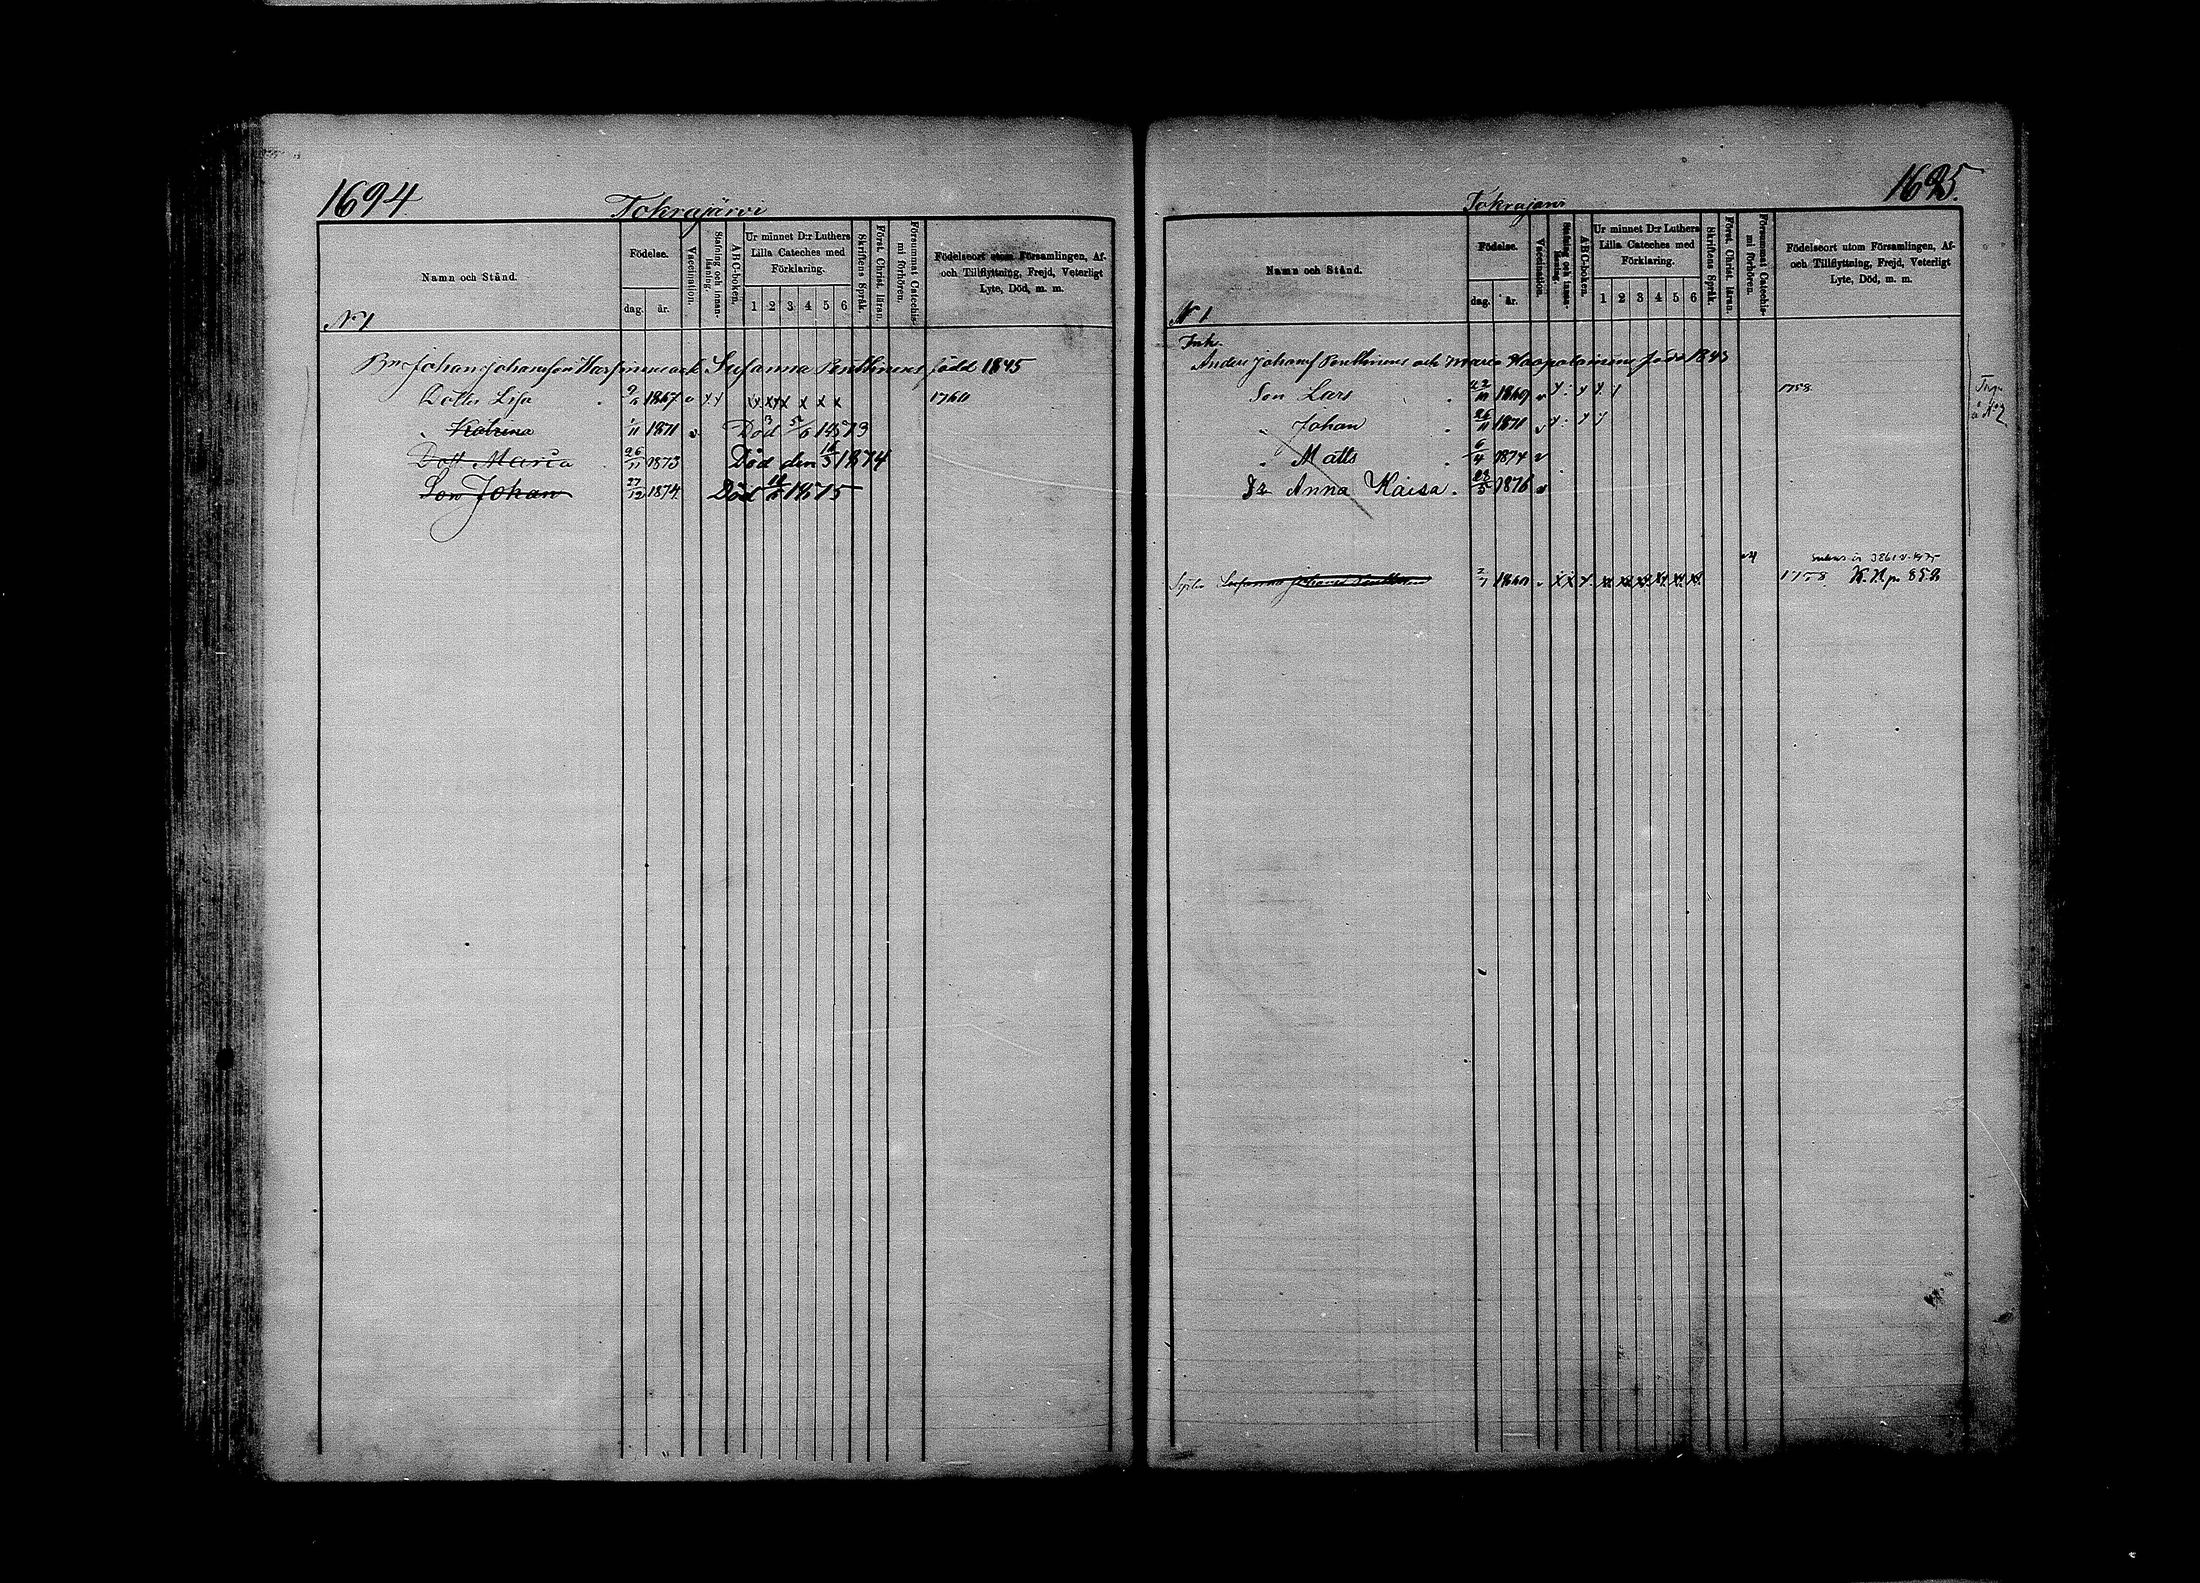 1694
Tokrajärvi
Namn och Stånd.
Födelse.
dag.
år.
Vaccination.
Stafning och innanläsning.
ABC-boken.
Ur minnet D:r Luthers Lilla Cateches med Förklaring.
1 2 3 4 5 6
Skriftens Språk.
Först. Christ. läran.
Försummat Catechismi förhören.
Födelseort utom Församlingen, Af- och Tillflyttning, Frejd, Veterligt Lyte, Död, m. m.
N 1
Johan Johansson och Susanna Penttinens född 1845
Dotter Lisa 9/6 1867 v x x x x x x x x 1760
" Katrina 1871 v Död 1873
Dott Maria 26/11 1873 Död den 1874
Son Johan 27/12 1874 Död 1875
1695.
Tokrajärvi
Namn och Stånd.
Födelse.
dag.
år.
Vaccination.
Stafning och innanläsning.
ABC-boken.
Ur minnet D:r Luthers Lilla Cateches med Förklaring.
1 2 3 4 5 6
Skriftens Språk.
Först. Christ. läran.
Försummat Catechismi förhören.
Födelseort utom Församlingen, Af- och Tillflyttning, Frejd, Veterligt Lyte, Död, m. m.
N 1
Inh.
Anders Johans Penttinens och Maria Haapalainens född 1843
Son Lars 1869 v 1758
" Johan 26/11 1871 v
" Matts 6/4 1874 v
Dr Anna Kaisa 23/5 1876 v
Susanna Johans 2/1 1860 v x x x x x x x x x 1758. K. N p. 852